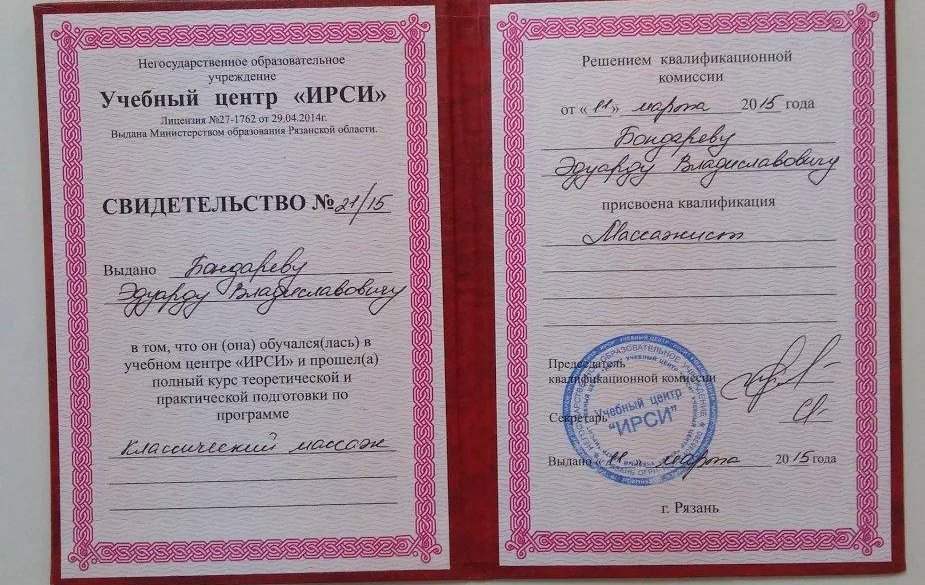 Негосударственное образовательное
учреждение
Учебный центр «ИРСИ»
Лицензия №27-1762 от 29.04.2014г.
Выдана Министерством образования Рязанской области.
СВИДЕТЕЛЬСТВО № 21/15
Выдано Бондареву
Эдуарду Владиславовичу
в том, что он (она) обучался(лась) в
учебном центре «ИРСИ» и прошел(а)
полный курс теоретической и
практической подготовки по
программе
Классический массаж
Решением квалификационной
комиссии
от «11» марта 2015 года
Бондареву
Эдуарду Владиславовичу
присвоена квалификация
Массажист
Председатель
квалификационной комиссии
Секретарь
Учебный центр
"ИРСИ"
Выдано «11» марта 2015 года
г. Рязань